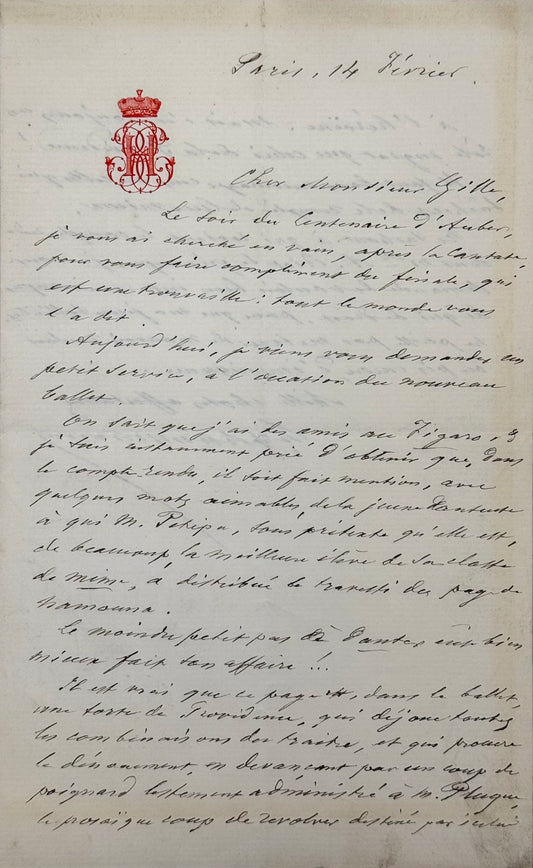 Paris, 14 Février.
Cher Monsieur Gille,
Le soir du Centenaire d'Auber,
je vous ai cherché en vain, après la Cantate,
pour vous faire compliment du finale, qui
est une trouvaille: tout le monde vous
l'a dit.
Aujourd'hui, je viens vous demander un
petit service, à l'occasion du nouveau
ballet.
On sait que j'ai des amis au Figaro, &
je suis instamment prié d'obtenir que, dans
le compte-rendu, il soit fait mention, avec
quelques mots aimables, de la jeune
à qui M. Petipa, sous prétexte qu'elle est,
de beaucoup, la meilleure élève de sa classe
de mime, a distribué le travesti du page de
Namouna.
Le moindre petit pas de eût bien
mieux fait son affaire!..
Il est vrai que ce page est, dans le ballet,
une sorte de Providence, qui déjoue toutes
les combinaisons du traître, et qui procure
le dénouement, en devançant par un coup de
poignard lestement administré à M. Pluque,
le prosaïque coup de revolver destiné par celui